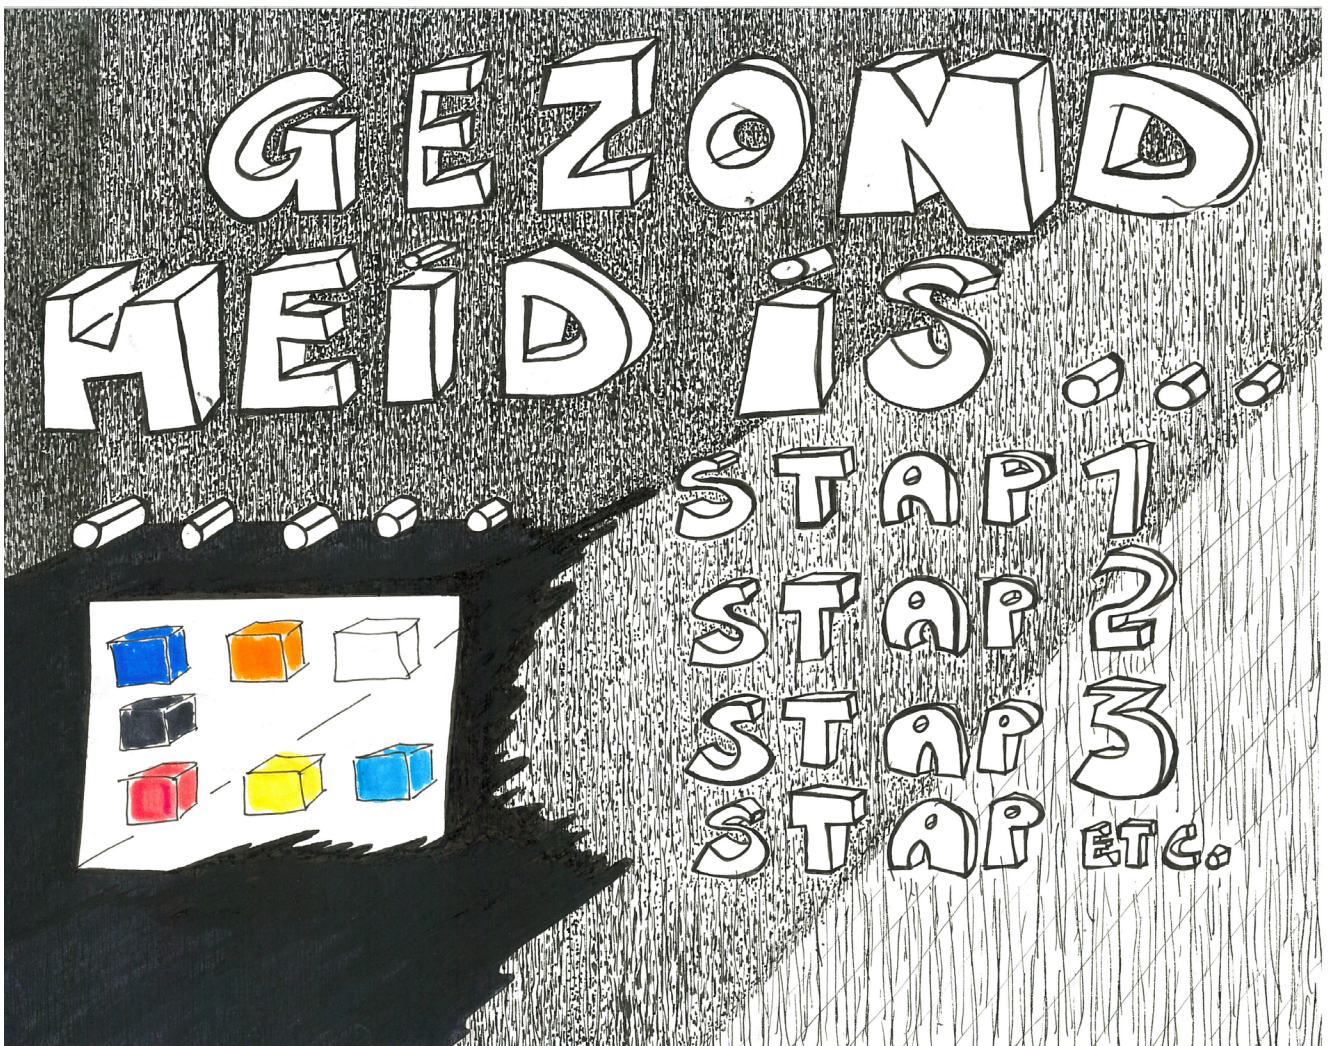 GEZOND
HEiD iS ...
.....
STAP 1
STAP 2
STAP 3
STAP ETC.